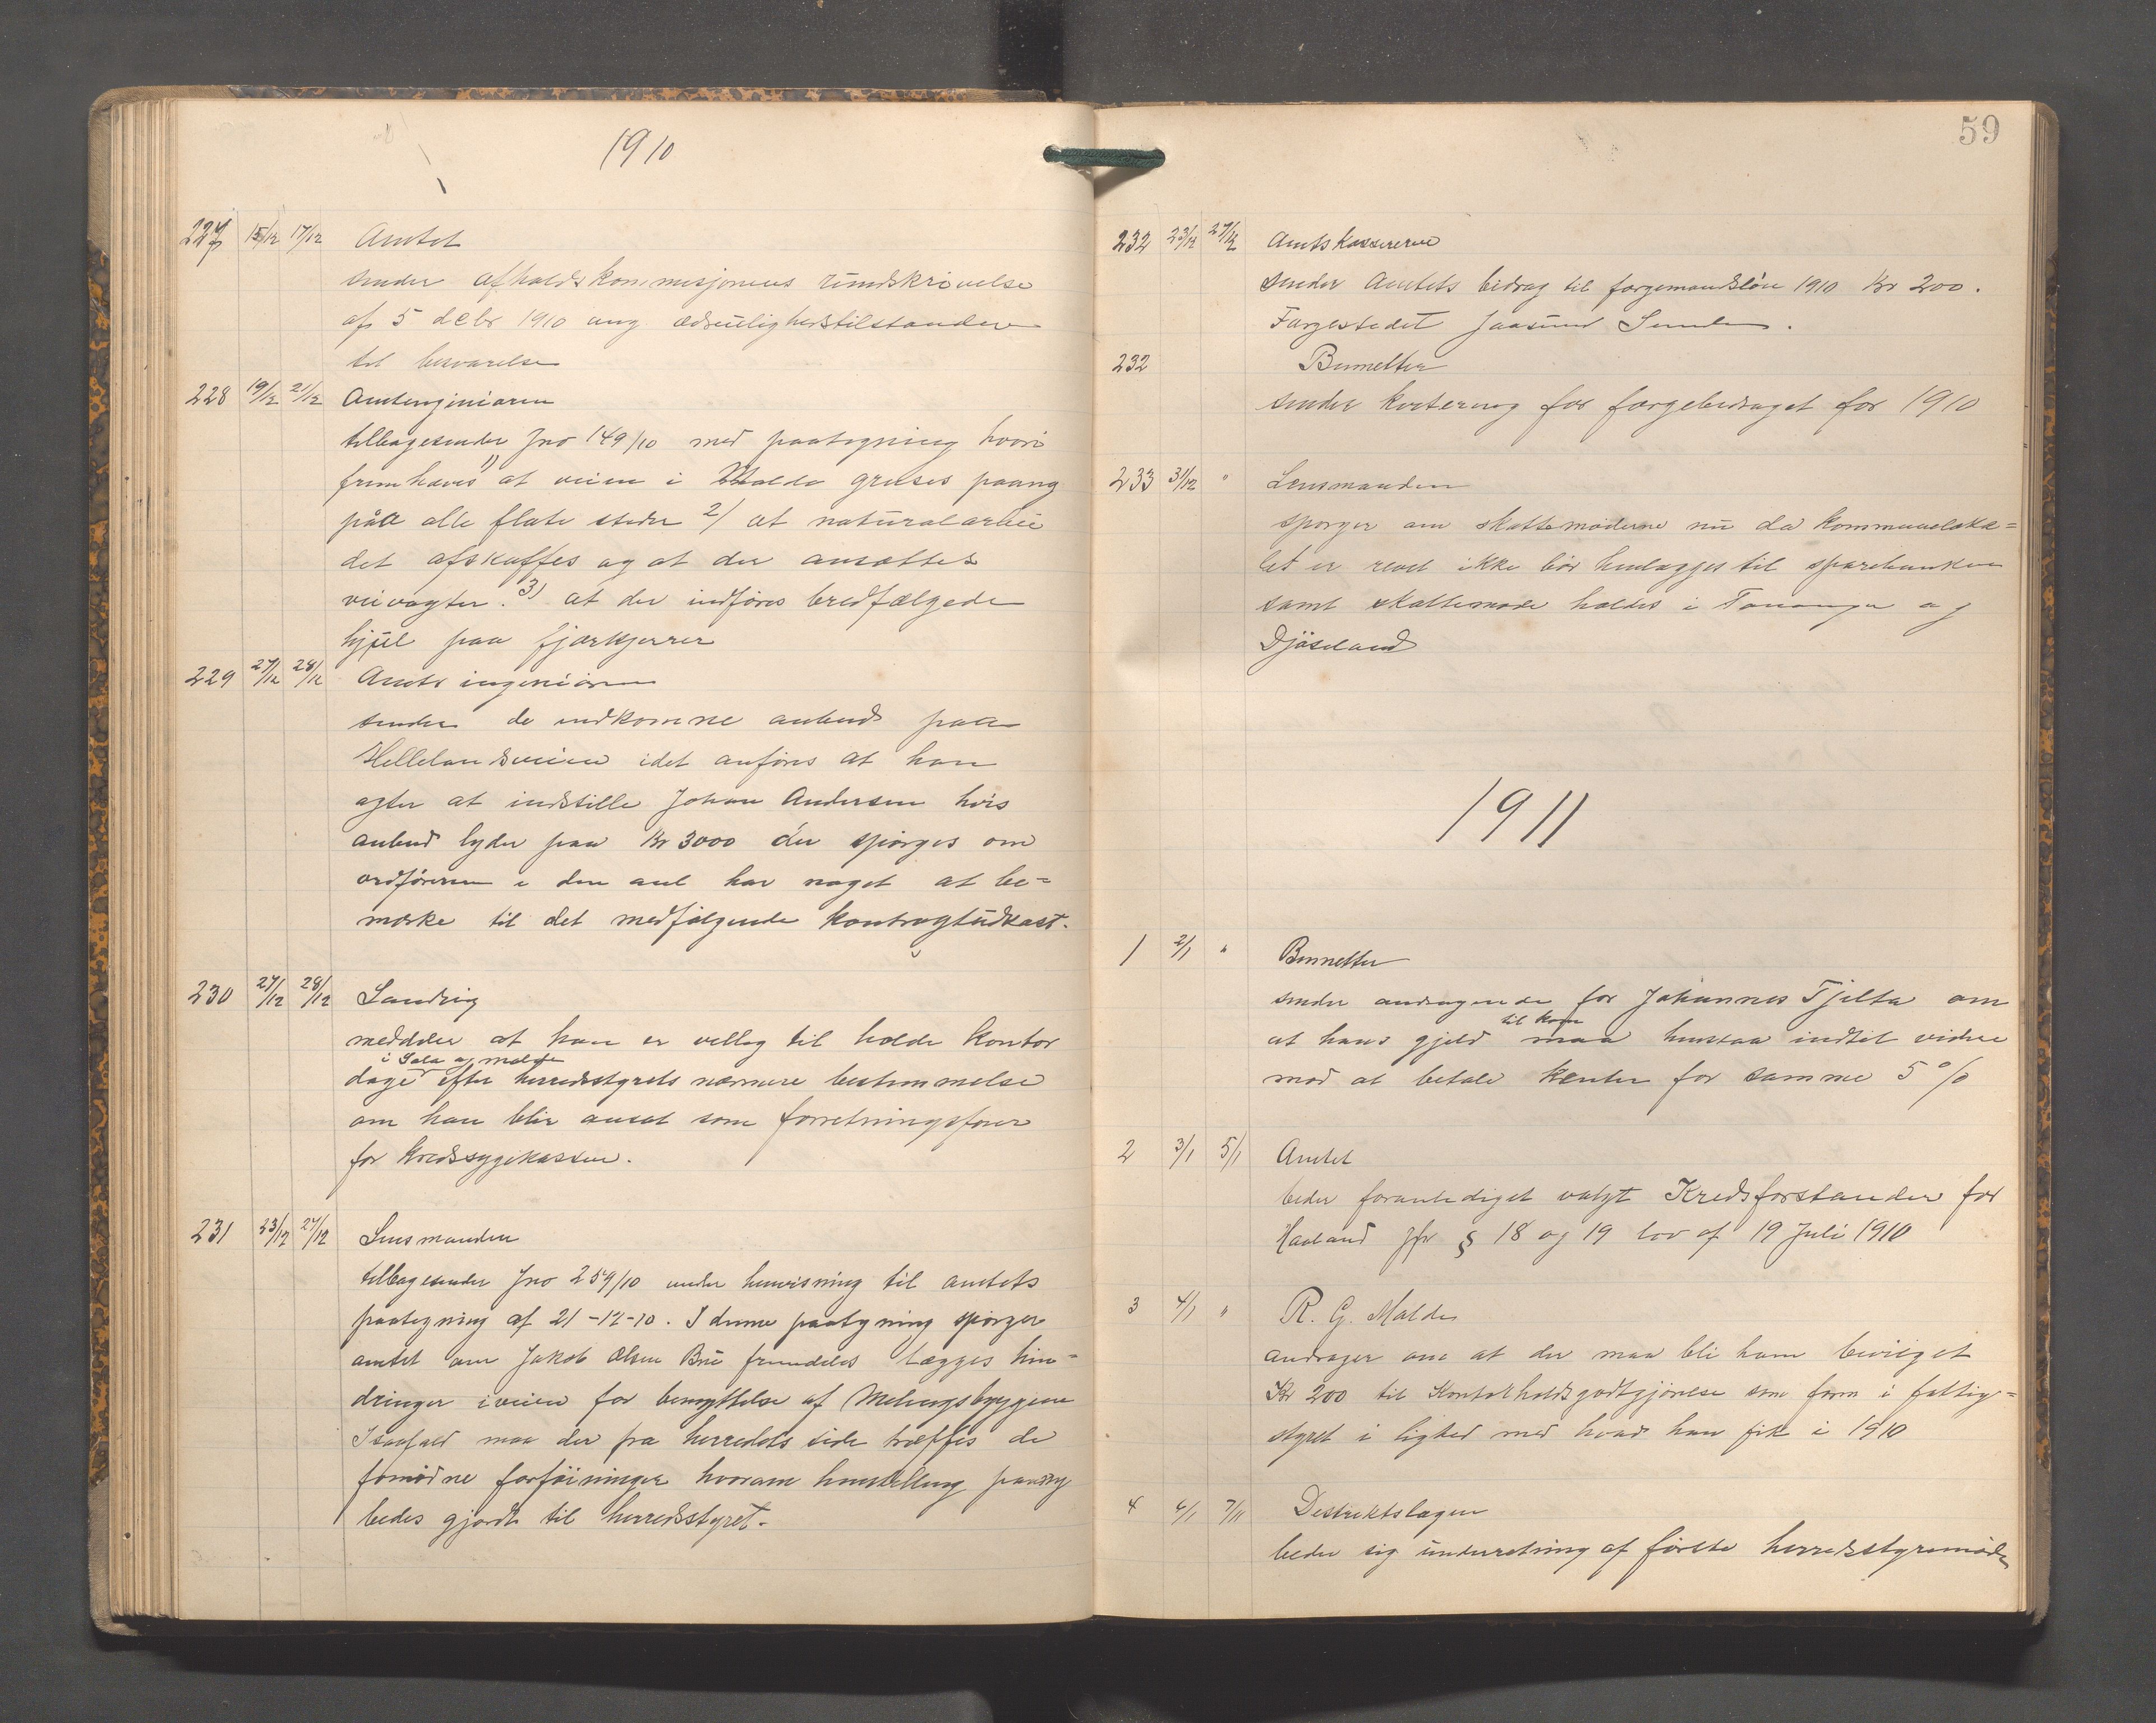 1910
227 15/12 17/12 Amtet
sender afholdskommisjonens rundskrivelse
af 5 debr 1910 ang ædruelighedstilstanden
til besvarelse
228 19/12 21/12 Amtenginiøren
tilbagesender Jno 149/10 med paategning hvori
fremhæves 1) at veien i Malde gruses paany
på alle flate steder 2/ at naturalarbei
det afskaffes og at der ansættes
veivogter. 3) at der indføres bredfælgede
hjul paa fjærkjerrer
229 27/12 28/12 Amts ingeniøren
sender de indkomne anbud paa
Hellelandsveien idet anføres at han
agter at indstille Johan Andersen hvis
anbud lyder paa Kr 3000 der spørges om
ordføreren i den anl har noget at be=
mærke til det medfølgende kontragtudkast.
230 27/12 28/12 Sandvig
meddeler at han er villig til holde kontor
i Sola og Malde
dage efter herredsstyrets nærmere bestemmelse
om han blir ansat som forretningsfører
for Kredssygekassen.
231 23/12 27/12 Lensmanden
tilbagesender Jno 259/10 under henvisning til amtets
paategning af 21-12-10. I denne paategning spørger
amtet om Jakob Olsen Bru fremdeles lægges hin=
dringer iveien for benyttelse af Melingsbryggene
Isaafald maa der fra herredets side træffes de
fornødne forføininger hvorom henstilling paany
bedes gjordt til herredsstyret.
59
232 23/12 27/12 Amtskassereren
sender Amtets bidrag til færgemandsløn 1910 Kr 200.
Færgestedet Jaasund Sunde.
232 Bemelter
sender kvitering for færgebidraget for 1910
233 31/12 " Lensmanden
spørger om skattemøderne nu da kommuneloka=
let er revet ikke bør henlægges til sparebanken
samt skattemøde holdes i Tananger og
Djøseland
1911
1 2/1 " Bemelter
sender andragende for Johannes Tjelta om
til kom
at hans gjeld maa henstaa indtil videre
mod at betale renter for samme 5 %
2 3/1 5/1 Amtet
beder foranlediget valgt Kredsforstander for
Haaland Jfr § 18 og 19 lov af 19 Juli 1910
3 4/1 " R. G. Malde
andrager om at der maa bli ham bevilget
Kr 200 til Kontorholdsgodtgjørelse som form i fattig=
styret i lighed med hvad han fik i 1910
4 6/1 7/11 Destriktslægen
beder sig underetning af første herredsstyremøde